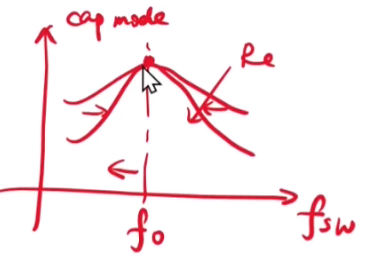 cap mode
Re
fo
fsw